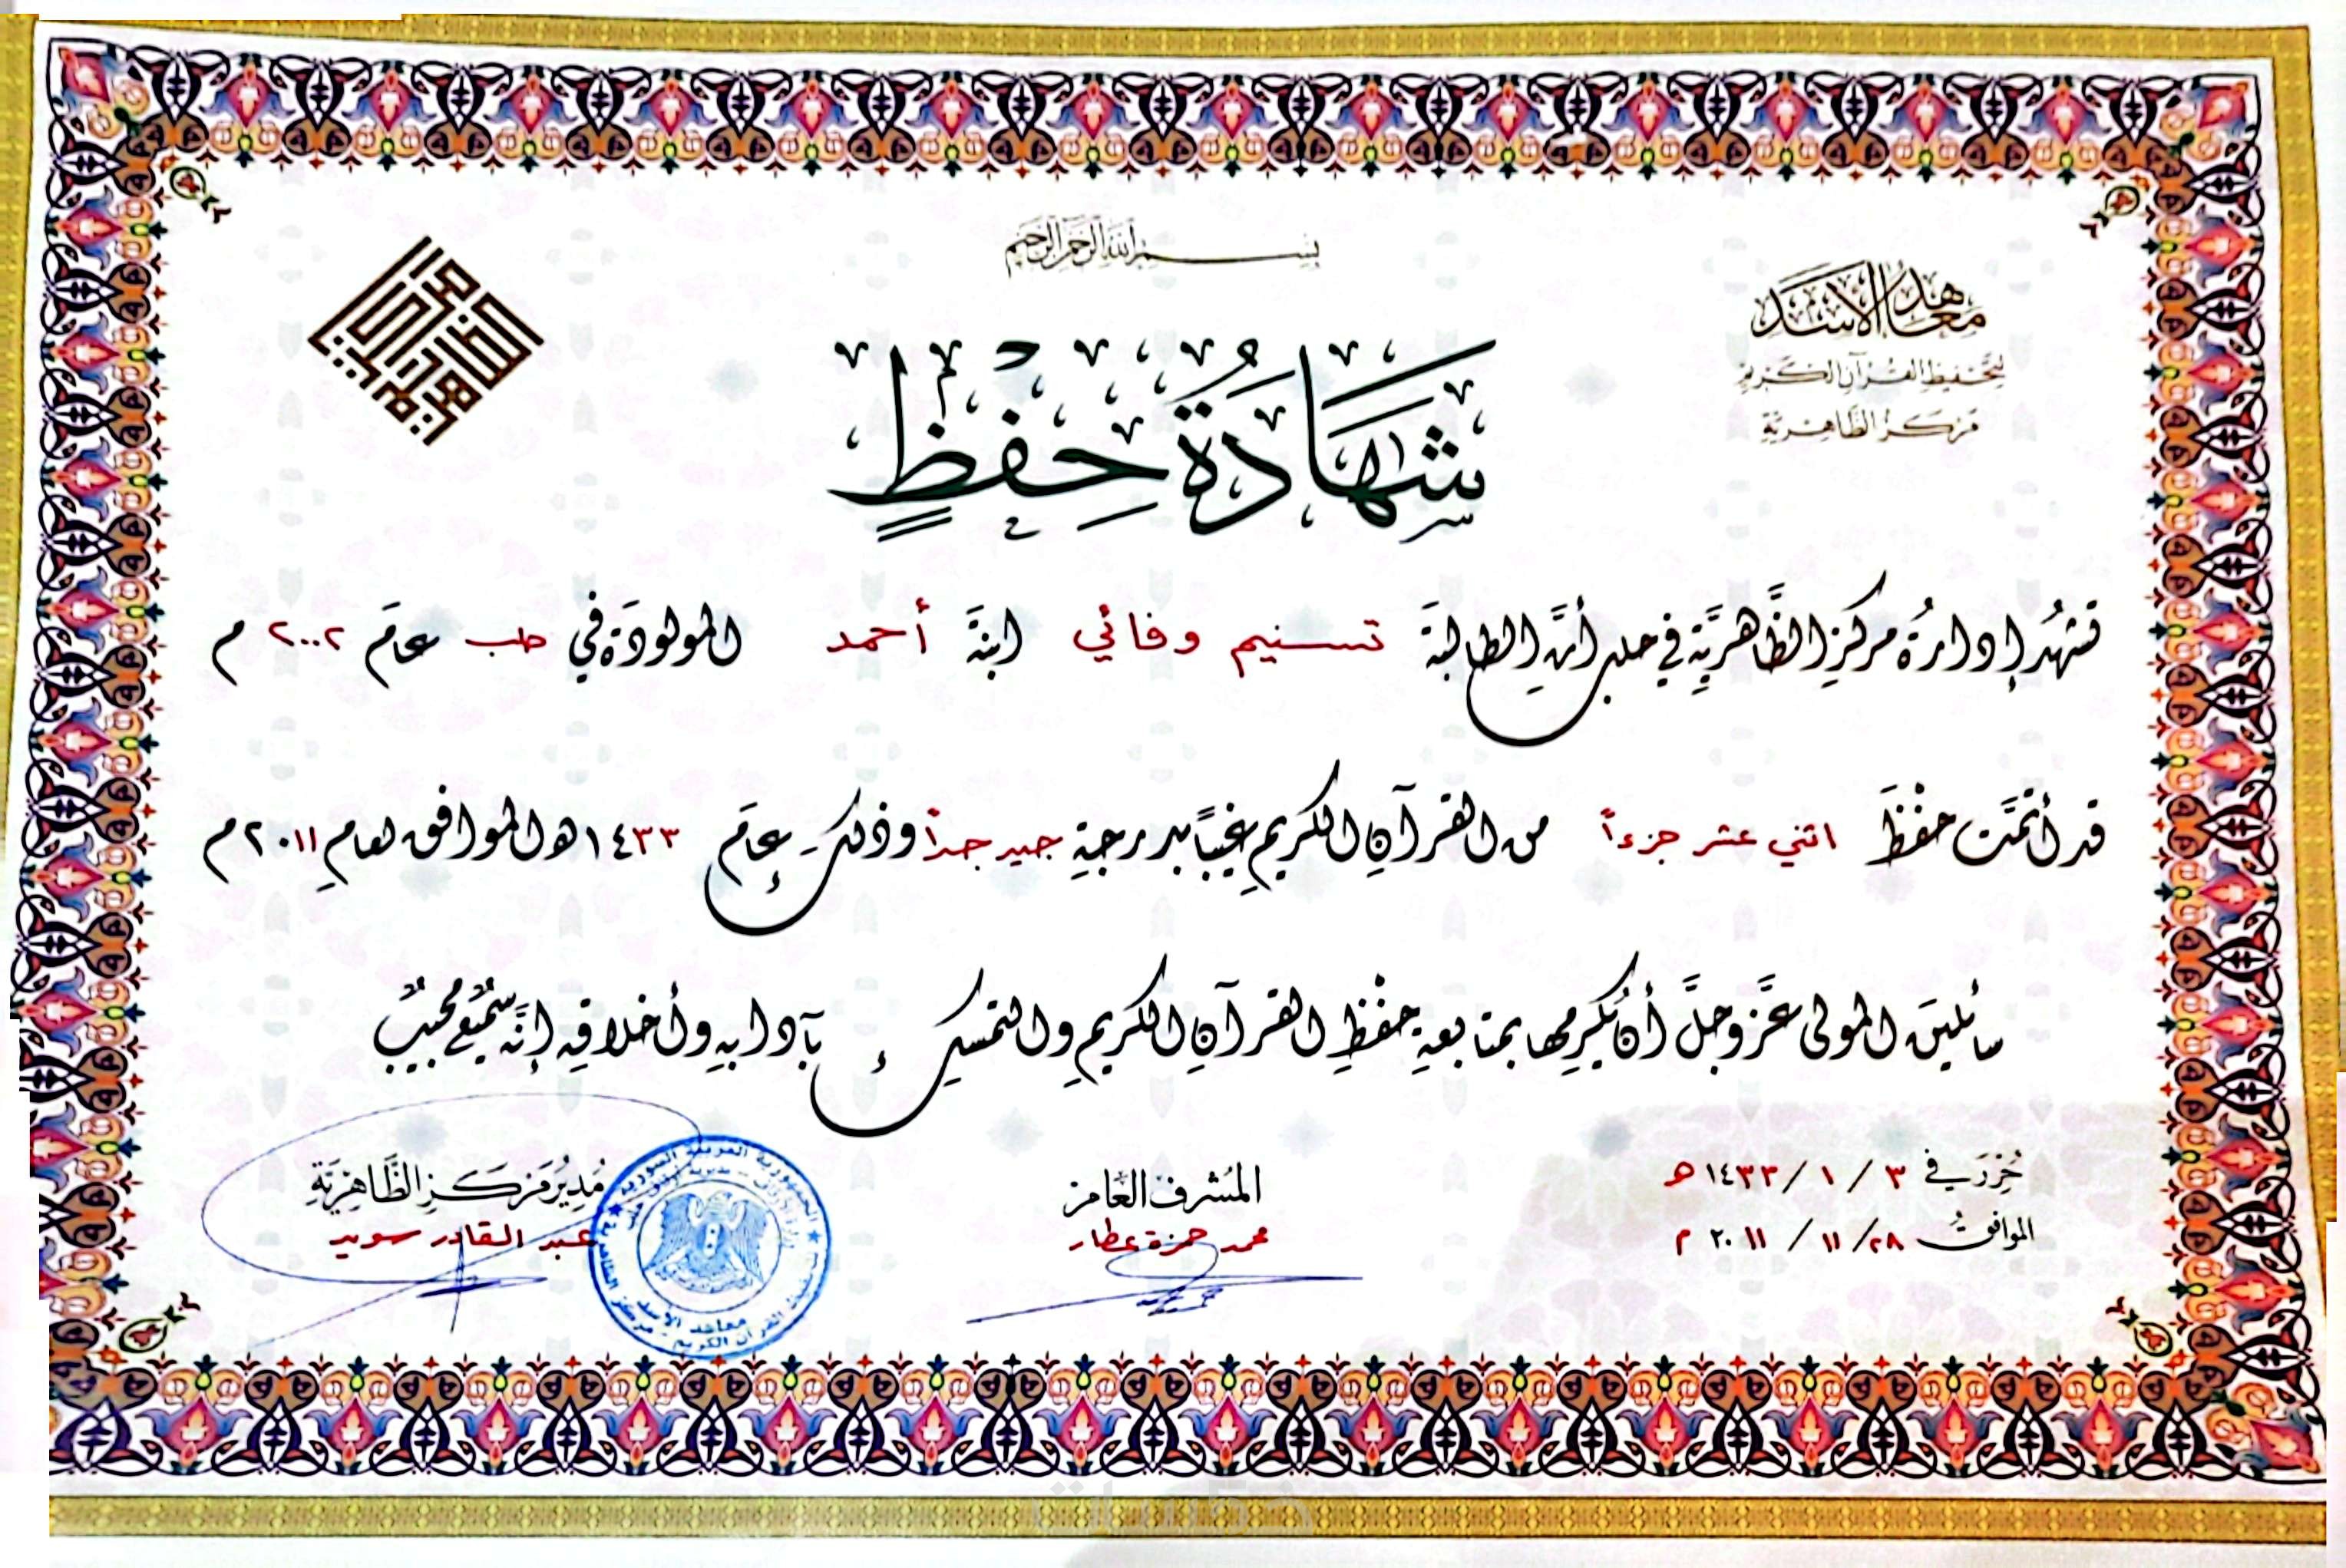 بسم الله الرحمن الرحيم
معاهد الأسد
لتحفيظ القرآن الكريم
مركز الظاهرية
شَهَادَةُ حِفْظٍ
تشهد إدارة مركز الظاهرية في حلب أنَّ الطالبة تسنيم وفائي ابنة أحمد المولودة في حلب عام ٢٠٠٢ م
قد أتمَّت حفْظَ اثني عشر جزءاً من القرآنِ الكريمِ غيباً بدرجةِ جيد جداً وذلك عام ١٤٣٣ هـ الموافق لعام ٢٠١١ م
سائلين المولى عزَّ وجلَّ أن يُكرمها بمتابعةِ حفْظِ القرآنِ الكريمِ والتمسكِ بآدابهِ وأخلاقهِ إنَّه سميعٌ مجيبٌ
حُرِّرَ في ٣ / ١ / ١٤٣٣ هـ
الموافق ٢٨ / ١١ / ٢٠١١ م
المشرف العام
محمد حمزة عطار
مُديرُ مَركَزِ الظَّاهِرِيَّةِ
عبد القادر سويد
الجمهورية العربية السورية
معاهد الأسد